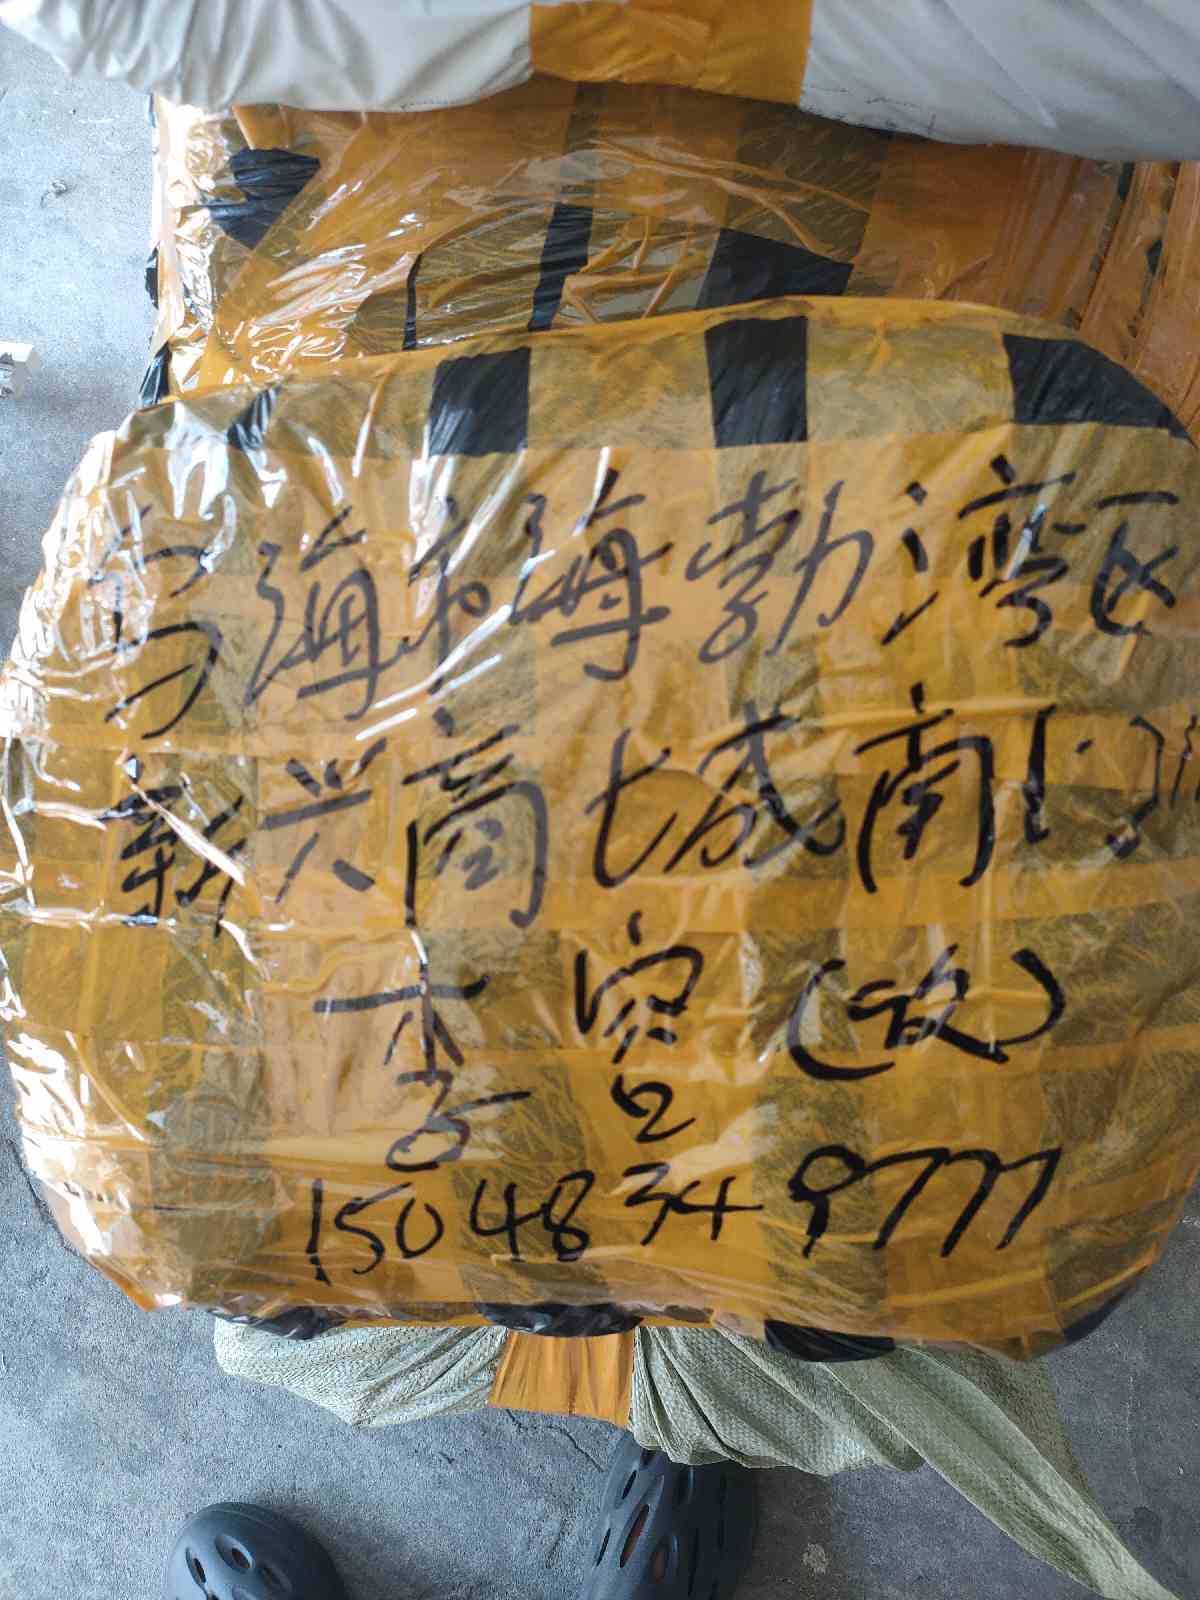 乌海市海勃湾区
新兴商城南门
李宫(收)
15048349777